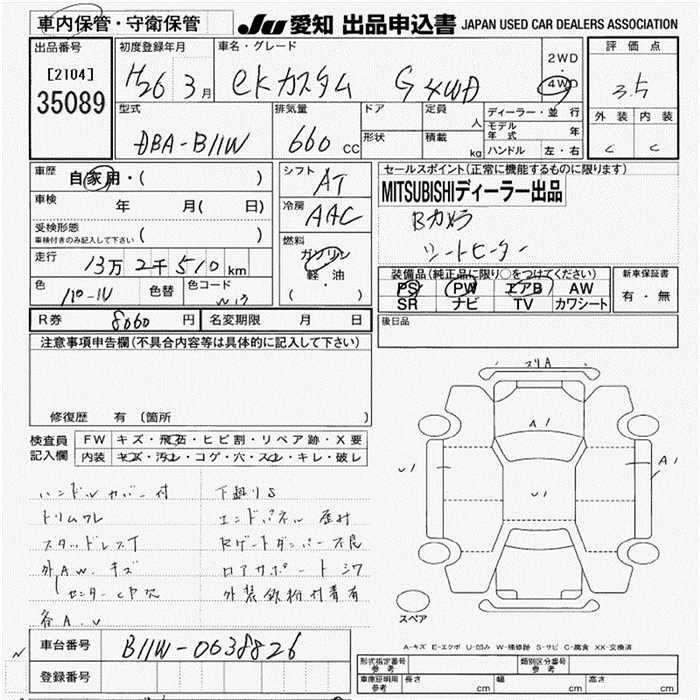 車内保管・守衛保管
JU 愛知 出品申込書 JAPAN USED CAR DEALERS ASSOCIATION
出品番号
[2104]
35089
初度登録年月
H26 3月
車名・グレード
eKカスタム G 4WD
2WD
・
4WD
評価点
3.5
外装 内装
C C
型式
DBA-B11W
排気量
660 cc
ドア
形状
定員
人
積載
kg
ディーラー・並行
モデル年式 年
ハンドル 左・右
車歴
自家用・( )
車検 年 月( 日)
受検形態
車検付きのみ記入して下さい ( )
走行
13万2千510km
色 色替 色コード
シフト
AT
冷房
AAC
燃料
ガソリン
軽油
( ・ )
セールスポイント(正常に機能するものに限ります)
MITSUBISHIディーラー出品
Bカメラ
シートヒーター
装備品(純正品に限り○をつけてください)
PS PW エアB AW
SR ナビ TV カワシート
新車保証書
有・無
R券 8060円 名変期限 月 日
後日品
注意事項申告欄(不具合内容等は具体的に記入して下さい)
修復歴 有 〔箇所
検査員
記入欄
FW キズ・飛石・ヒビ割・リペア跡・X要
内装 キズ・汚れ・コゲ・穴・スレ・キレ・破レ
ハンドルカバー付
トリムワレ
スタッドレスT
外AW.キズ
センターCP欠
各A.U
下廻りS
エンドパネル歪み
Rゲートダンパー不良
ロアサポートシワ
外装鉄粉付着有
スリA
A1
U1
U1
A1
スペア
車台番号 B11W-0638826
登録番号
A-キズ E-エクボ U-凹み W-補修跡 S-サビ C-腐食 XX-交換済
形式指定番号
参考
類別区分番号
参考
車庫証明用
参考
長さ cm 幅 cm 高さ cm